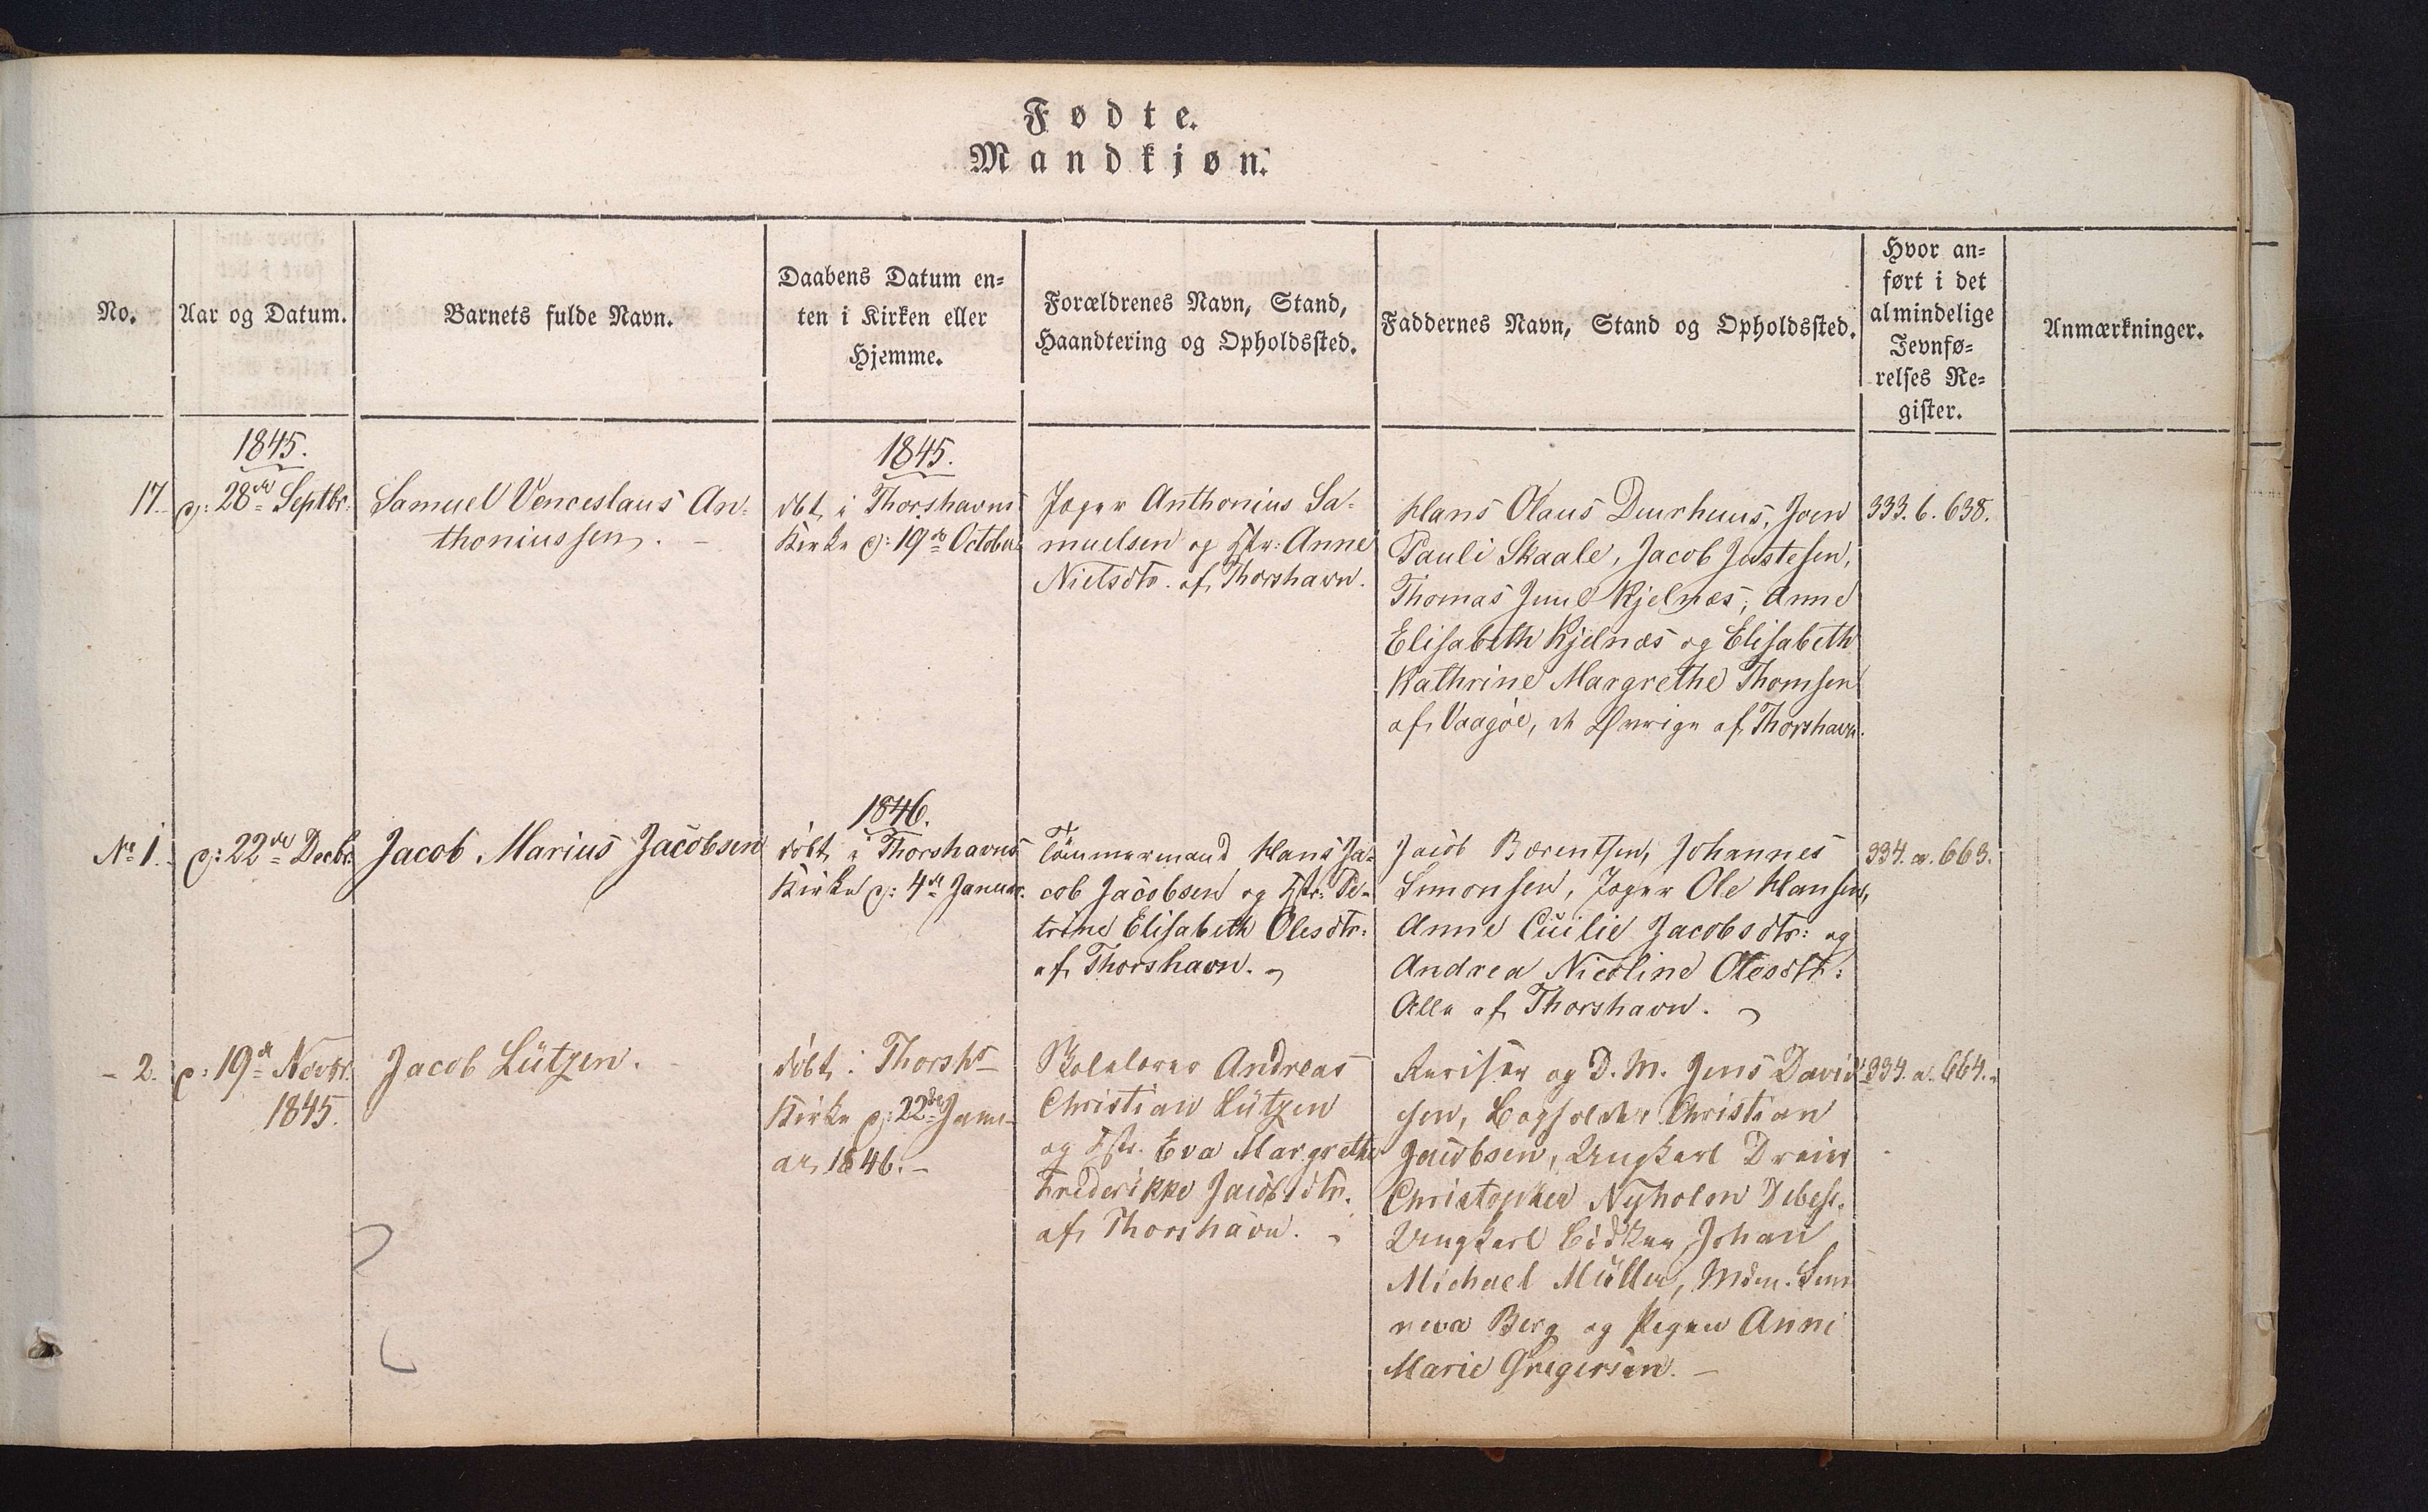 Fødte.
Mandkjøn.
No.
Aar og Datum.
Barnets fulde Navn.
Daabens Datum en=
ten i Kirken eller
Hjemme.
Forældrenes Navn, Stand,
Haandtering og Opholdssted.
Faddernes Navn, Stand og Opholdssted.
Hvor an=
ført i det
almindelige
Jevnfø=
relses Re=
gister.
Anmærkninger.
17.
1845.
d: 28de Septbr.
Samuel Venceslaus An-
thoniussen. -
1845.
dbt. i Thorshavns
Kirke d: 19de October
Jæger Anthonius Sa-
muelsen og Hstr: Anne
Nielsdtr. af Thorshavn.
Hans Olaus Duurhuus, Joen
Pauli Skaale, Jacob Justesen,
Thomas Juul Kjelnæs, Anne
Elisabeth Kjelnæs og Elisabeth
Kathrine Margrethe Thomsen
af Vaagöe, de Øvrige af Thorshavn.
333. b. 638.
No 1.
d: 22de Decbr.
Jacob Marius Jacobsen
1846.
döbt i Thorshavns
Kirke d: 4de Januar.
Tömmermand Hans Ja-
cob Jacobsen og Hstr: Pe-
trine Elisabeth Olesdtr:
af Thorshavn.
Jacob Bærentsen, Johannes
Simonsen, Jæger Ole Hansen,
Anne Cicilie Jacobsdtr: og
Andrea Nicoline Olesdtr:
Alle af Thorshavn.
334. a. 663.
- 2.
d: 19de Novbr.
1845.
Jacob Lützen.
döbt i Thorshs
Kirke d: 22de Janu-
ar 1846. -
Skolelærer Andreas
Christian Lützen
og Hstr. Eva Margrethe
Frederikke Jacobsdtr.
af Thorshavn.
og D. M. Jens David-
sen, Bogholder Christian
Jacobsen, Ungkarl
Christopher Nyholm Debess.
Ungkarl Bödker Johan
Michael Müller, Mdm. Sun-
neva Berg og Pigen Anne
Marie Gregersen. -
334. a. 664.